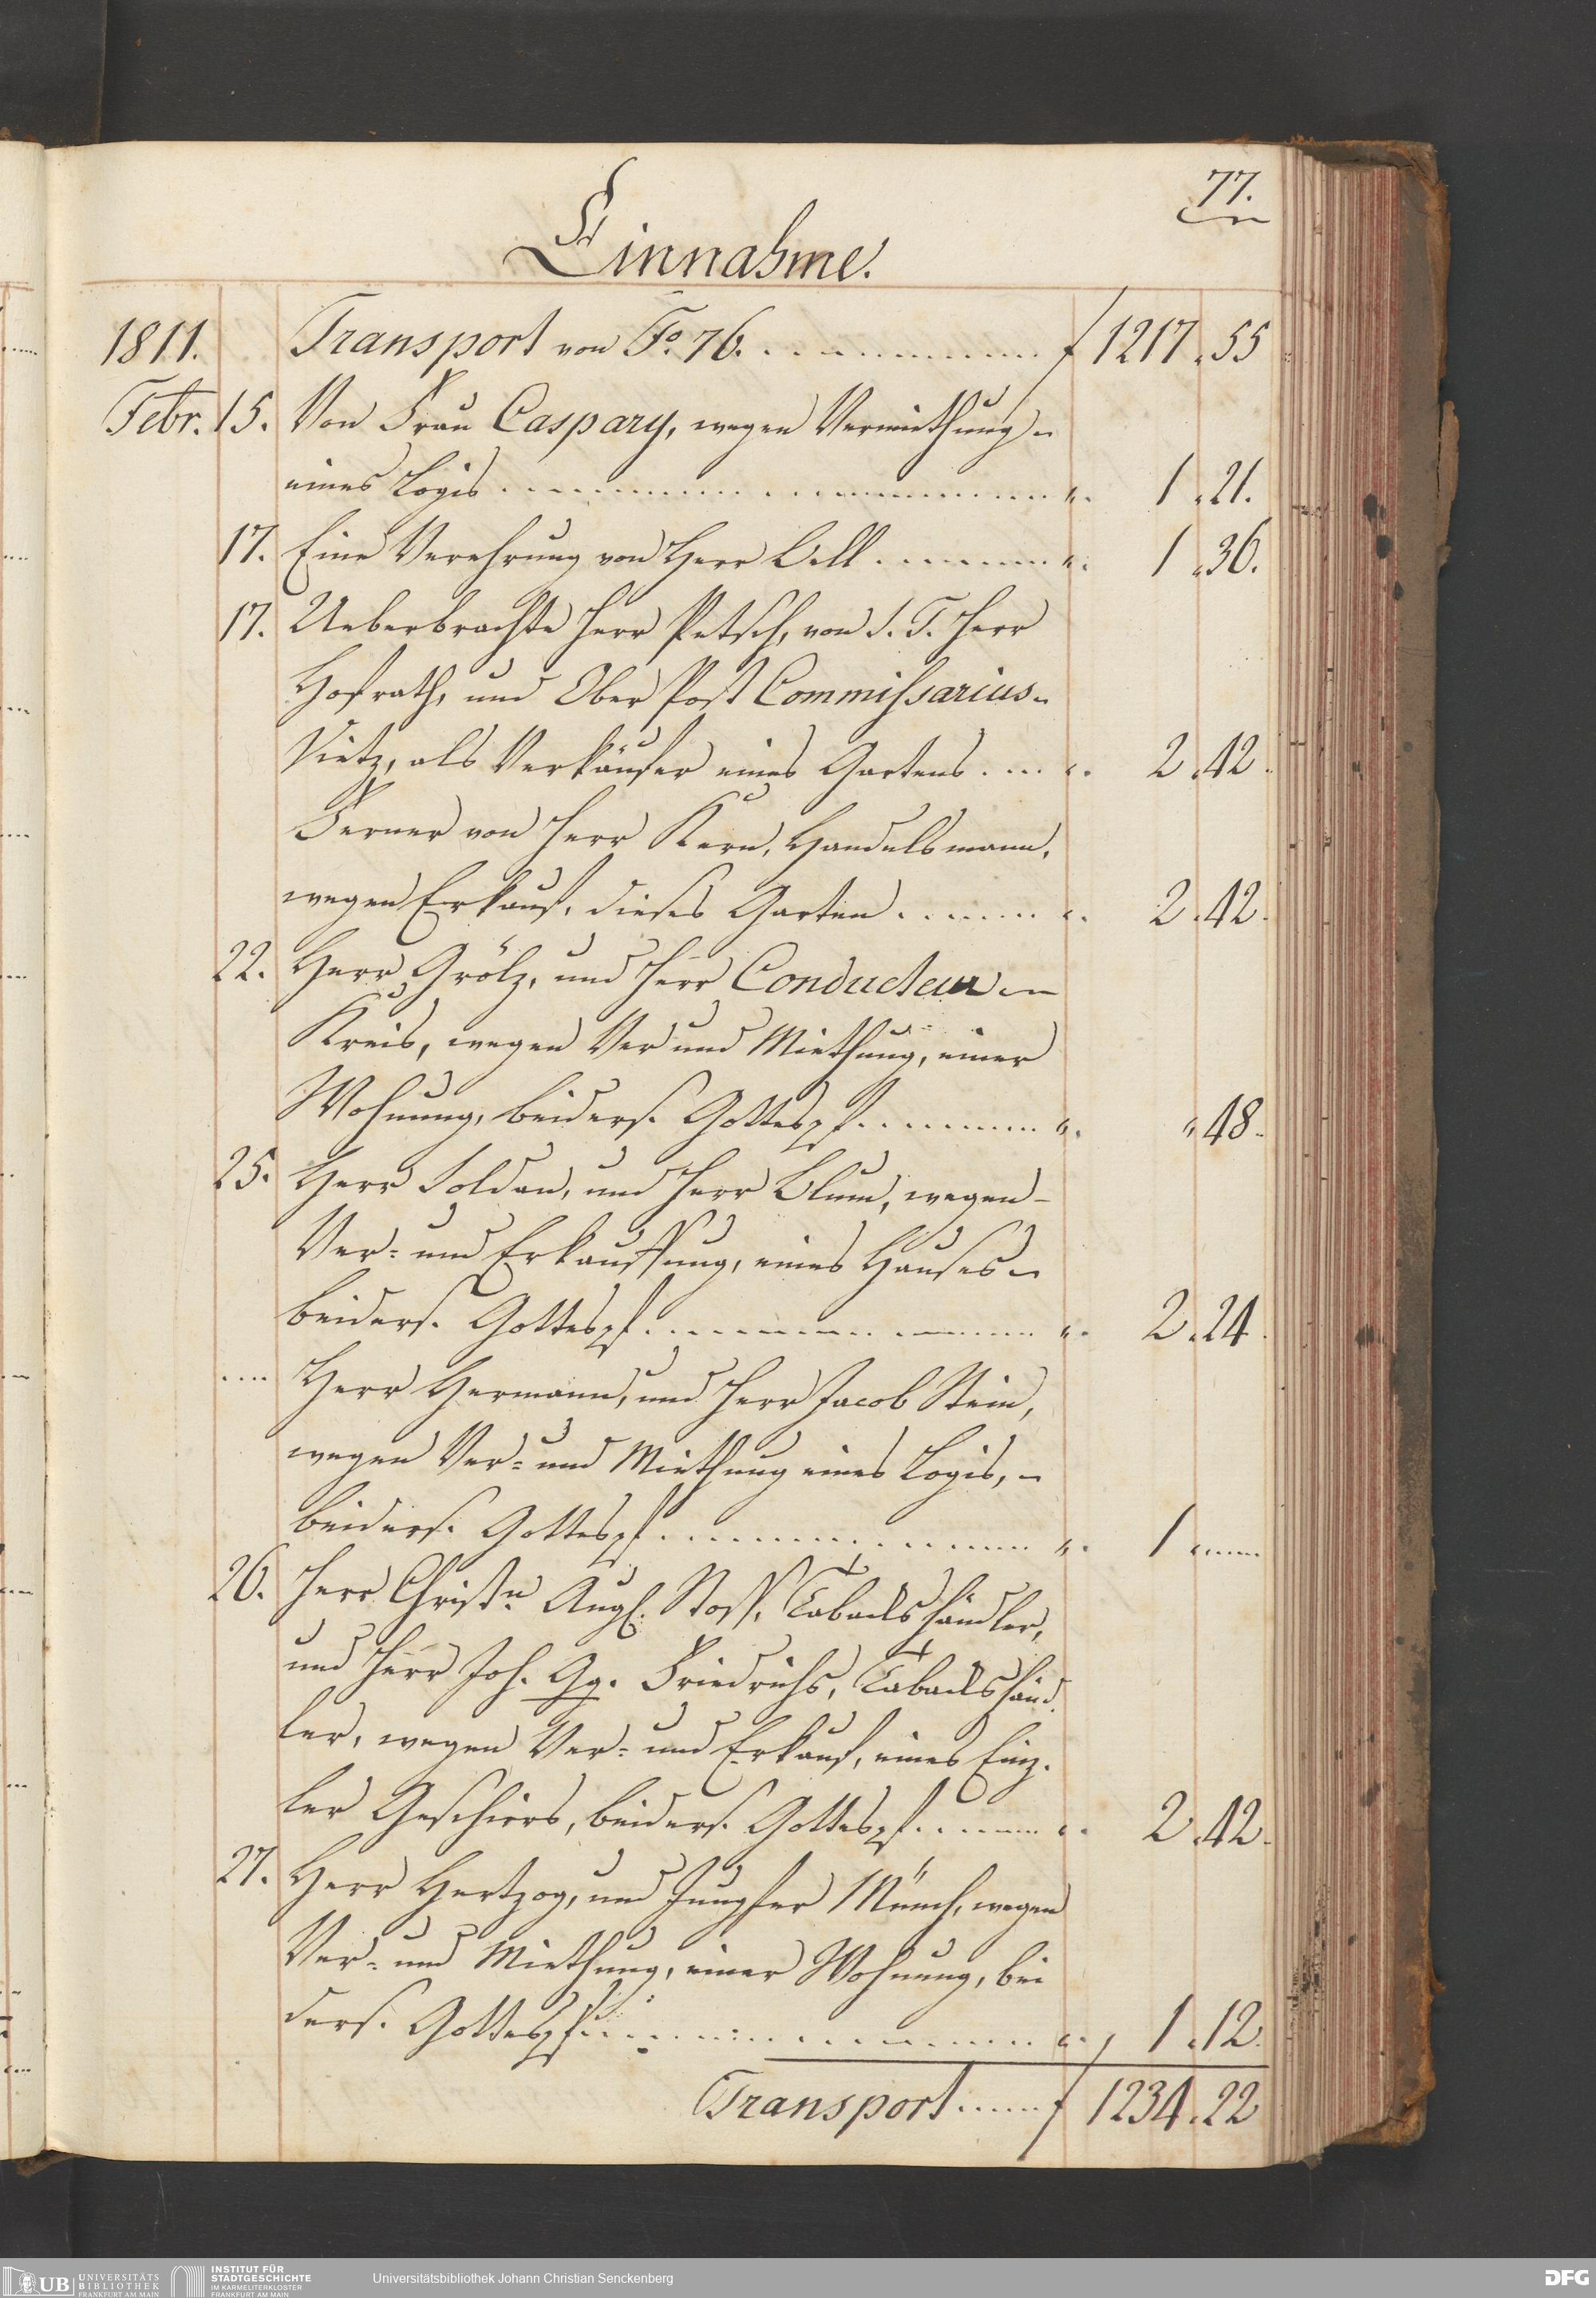 77.
Einnahme.
1811. Transport von Fo. 76. . . . . . . . . . f 1217 . 55
Febr. 15. Von Frau Caspary, wegen Vermiethung
eines Logis . . . . . . . . . . . . . . . . ". 1 . 21.
17. Eine Verehrung von Herr Oell . . . . . . ". 1 . 36.
17. Ueberbrachte Herr Petsch, von S. T. Herr
Hofrath, und Ober Post Commissarius
Vietz, als Verkäufer eines Gartens . . . . ". 2 . 42.
Ferner von Herr Kern, Handelsmann,
wegen Erkauf, dieses Garten . . . . . . ". 2 . 42.
22. Herr Grölz, und Herr Conducteur
Kreis, wegen Ver und Miethung, einer
Wohnung, beiders. Gottespf. . . . . . . . ". " 48.
25. Herr Soldan, und Herr Blum, wegen
Ver= und Erkauffung, eines Hauses
beiders. Gottespf. . . . . . . . . . . . ". 2 . 24.
. . . . Herr Hermann, und Herr Jacob Stein,
wegen Ver= und Miethung eines Logis,
beiders. Gottespf. . . . . . . . . . . . ". 1 . . . .
26. Herr Christn. Aug. Stoss, Tabackshändler,
und Herr Joh. Gg. Friedrichs, Tabackshänd
ler, wegen Ver= und Erkauf, eines Einz.
ler Geschirrs, beiders. Gottespf. . . . . . ". 2 . 42.
27. Herr Hertzog, und Jungfer Münch, wegen
Ver= und Miethung, einer Wohnung, bei
ders. Gottespf. . . . . . . . . . . . . . ". 1 . 12.
Transport . . . . . f 1234 . 22
UB UNIVERSITÄTS
BIBLIOTHEK
FRANKFURT AM MAIN
INSTITUT FÜR
STADTGESCHICHTE
IM KARMELITERKLOSTER
FRANKFURT AM MAIN
Universitätsbibliothek Johann Christian Senckenberg
DFG